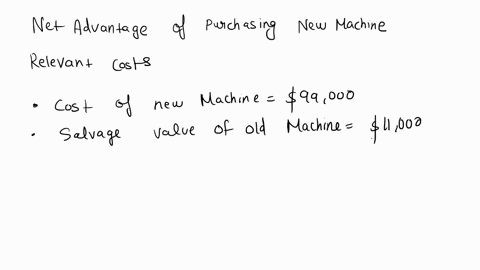 Net Advantage of Purchasing New Machine
Relevant costs
• Cost of new Machine = $99,000
• Salvage value of old Machine = $11,000